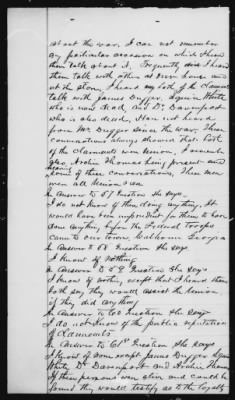 about the war, I can not remember
any particular occasion on which I heard
them talk about it. Frequently did I hear
them talk with others at our house and
at the store, I heard my both of the Claimants
talk with James Dugger, Squire White
who is now dead and Dr. Davenport
who is also dead, Has not heard
from Mr. Dugger since the war. Their
conversations always showed that both
of the Claimants were Union, I remember
also, Archie Thomas being present and
hearing some of these conversations, These men
were all Union men
In answer to 57 Question she says
I do not know of them doing anything, It
would have been imprudent for them to have
done anything before the Federal troops
came to our town, Calhoun Georgia
In answer to 58 Question she says
I know of nothing
In answer to 59 Question she says
I know of nothing, except that I heard them
both say they would assist the Union,
if they did anything
In answer to 60 Question she says
I do not know of the public reputation
of Claimants
In answer to 61st Question she says
I know of none except James Dugger Squire
White, Dr Davenport and Archie Thomas
If these persons were alive and could be
found they would testify as to the loyalty